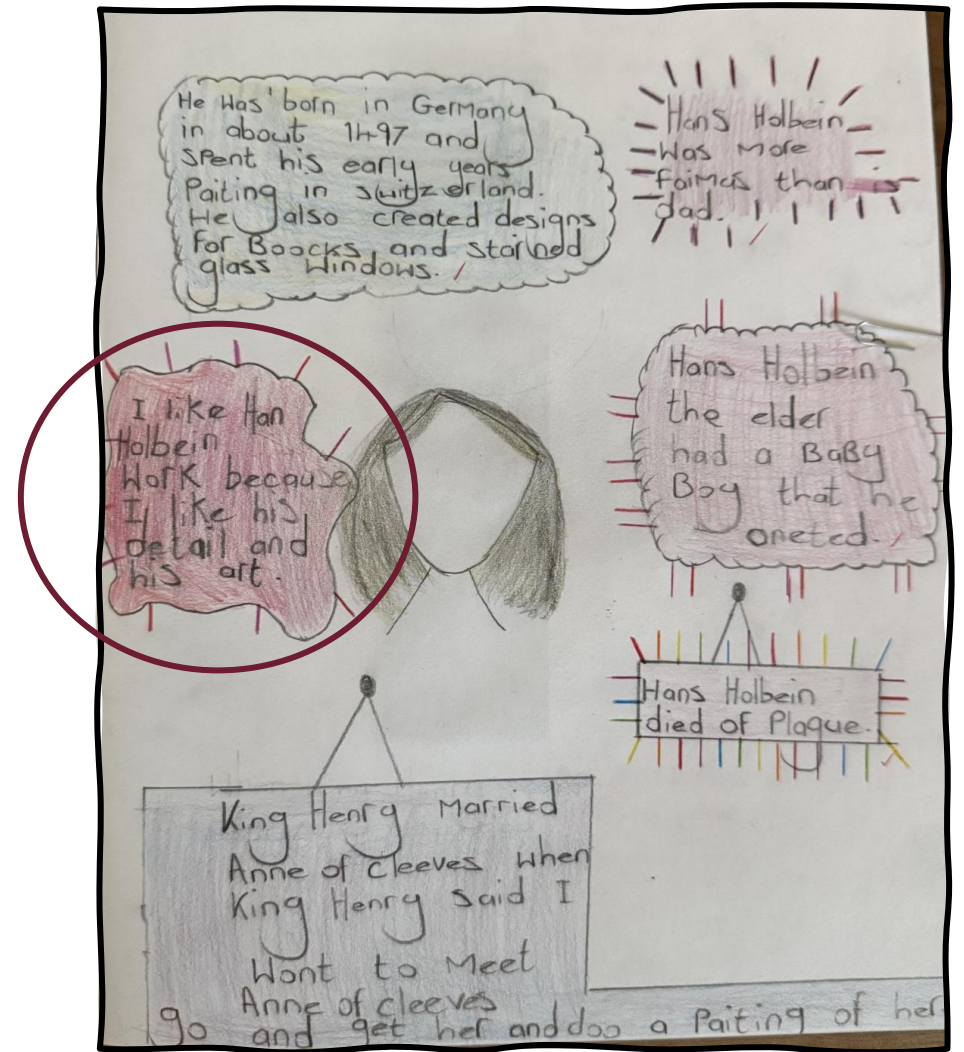 He was born in Germany
in about 1497 and
spent his early years
Paiting in switzerland.
He also created designs
for Boocks and stained
glass windows.
Hans Holbein
was more
faimas than
dad.
I like Han
Holbein
Work because
I like his
detail and
his art.
Hans Holbein
the elder
had a BaBy
Boy that he
oneted.
Hans Holbein
died of Plaque.
King Henry Married
Anne of cleeves when
King Henry said I
Wont to Meet
Anne of cleeves
go and get her and doo a Paiting of her